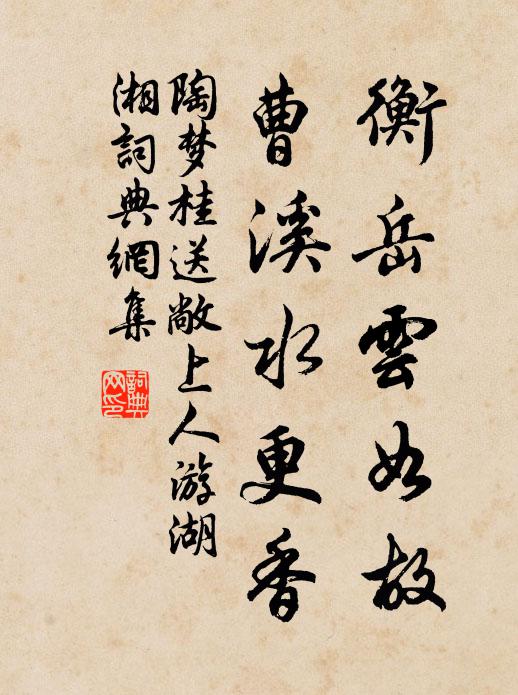 衡岳雲如故
曹溪水更香
陶梦桂送敞上人游湖
湘詞典網集
詞典
网印